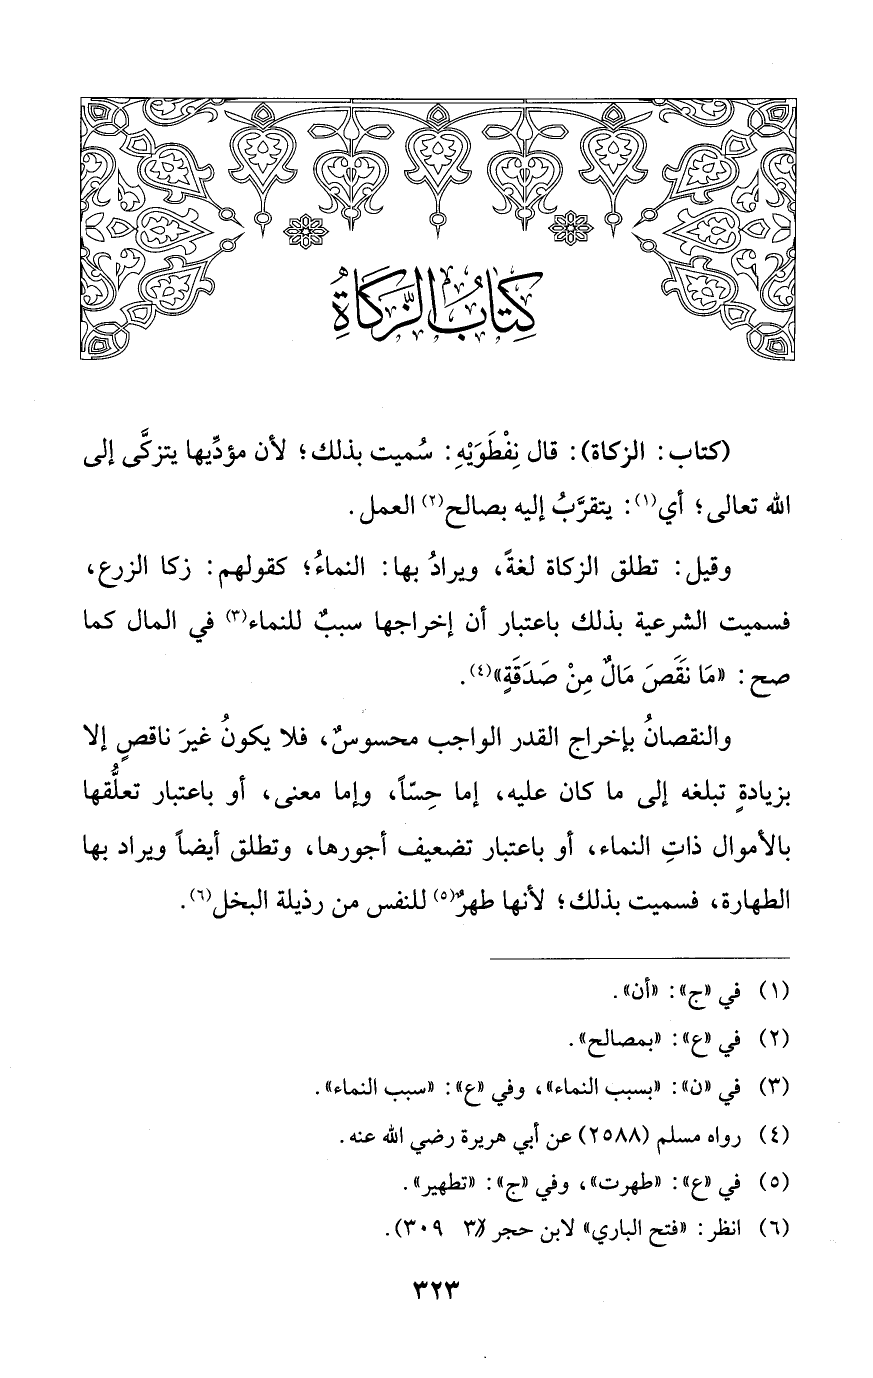 كِتَابُ الزَّكَاةِ
(كتاب: الزكاة): قال نِفْطَوَيْهِ: سُميت بذلك؛ لأن مؤدِّيها يتزكَّى إلى
الله تعالى؛ أي(١): يتقرَّبُ إليه بصالح(٢) العمل.
وقيل: تطلق الزكاة لغةً، ويرادُ بها: النماءُ؛ كقولهم: زكا الزرع،
فسميت الشرعية بذلك باعتبار أن إخراجها سببٌ للنماء(٣) في المال كما
صح: «مَا نَقَصَ مَالٌ مِنْ صَدَقَةٍ»(٤).
والنقصانُ بإخراج القدر الواجب محسوسٌ، فلا يكونُ غيرَ ناقصٍ إلا
بزيادةٍ تبلغه إلى ما كان عليه، إما حِسّاً، وإما معنى، أو باعتبار تعلُّقها
بالأموال ذاتِ النماء، أو باعتبار تضعيف أجورها، وتطلق أيضاً ويراد بها
الطهارة، فسميت بذلك؛ لأنها طهرٌ(٥) للنفس من رذيلة البخل(٦).
(١) في «ج»: «أن».
(٢) في «ع»: «بمصالح».
(٣) في «ن»: «بسبب النماء»، وفي «ع»: «سبب النماء».
(٤) رواه مسلم (٢٥٨٨) عن أبي هريرة رضي الله عنه.
(٥) في «ع»: «طهرت»، وفي «ج»: «تطهير».
(٦) انظر: «فتح الباري» لابن حجر (٣/ ٣٠٩).
٣٢٣